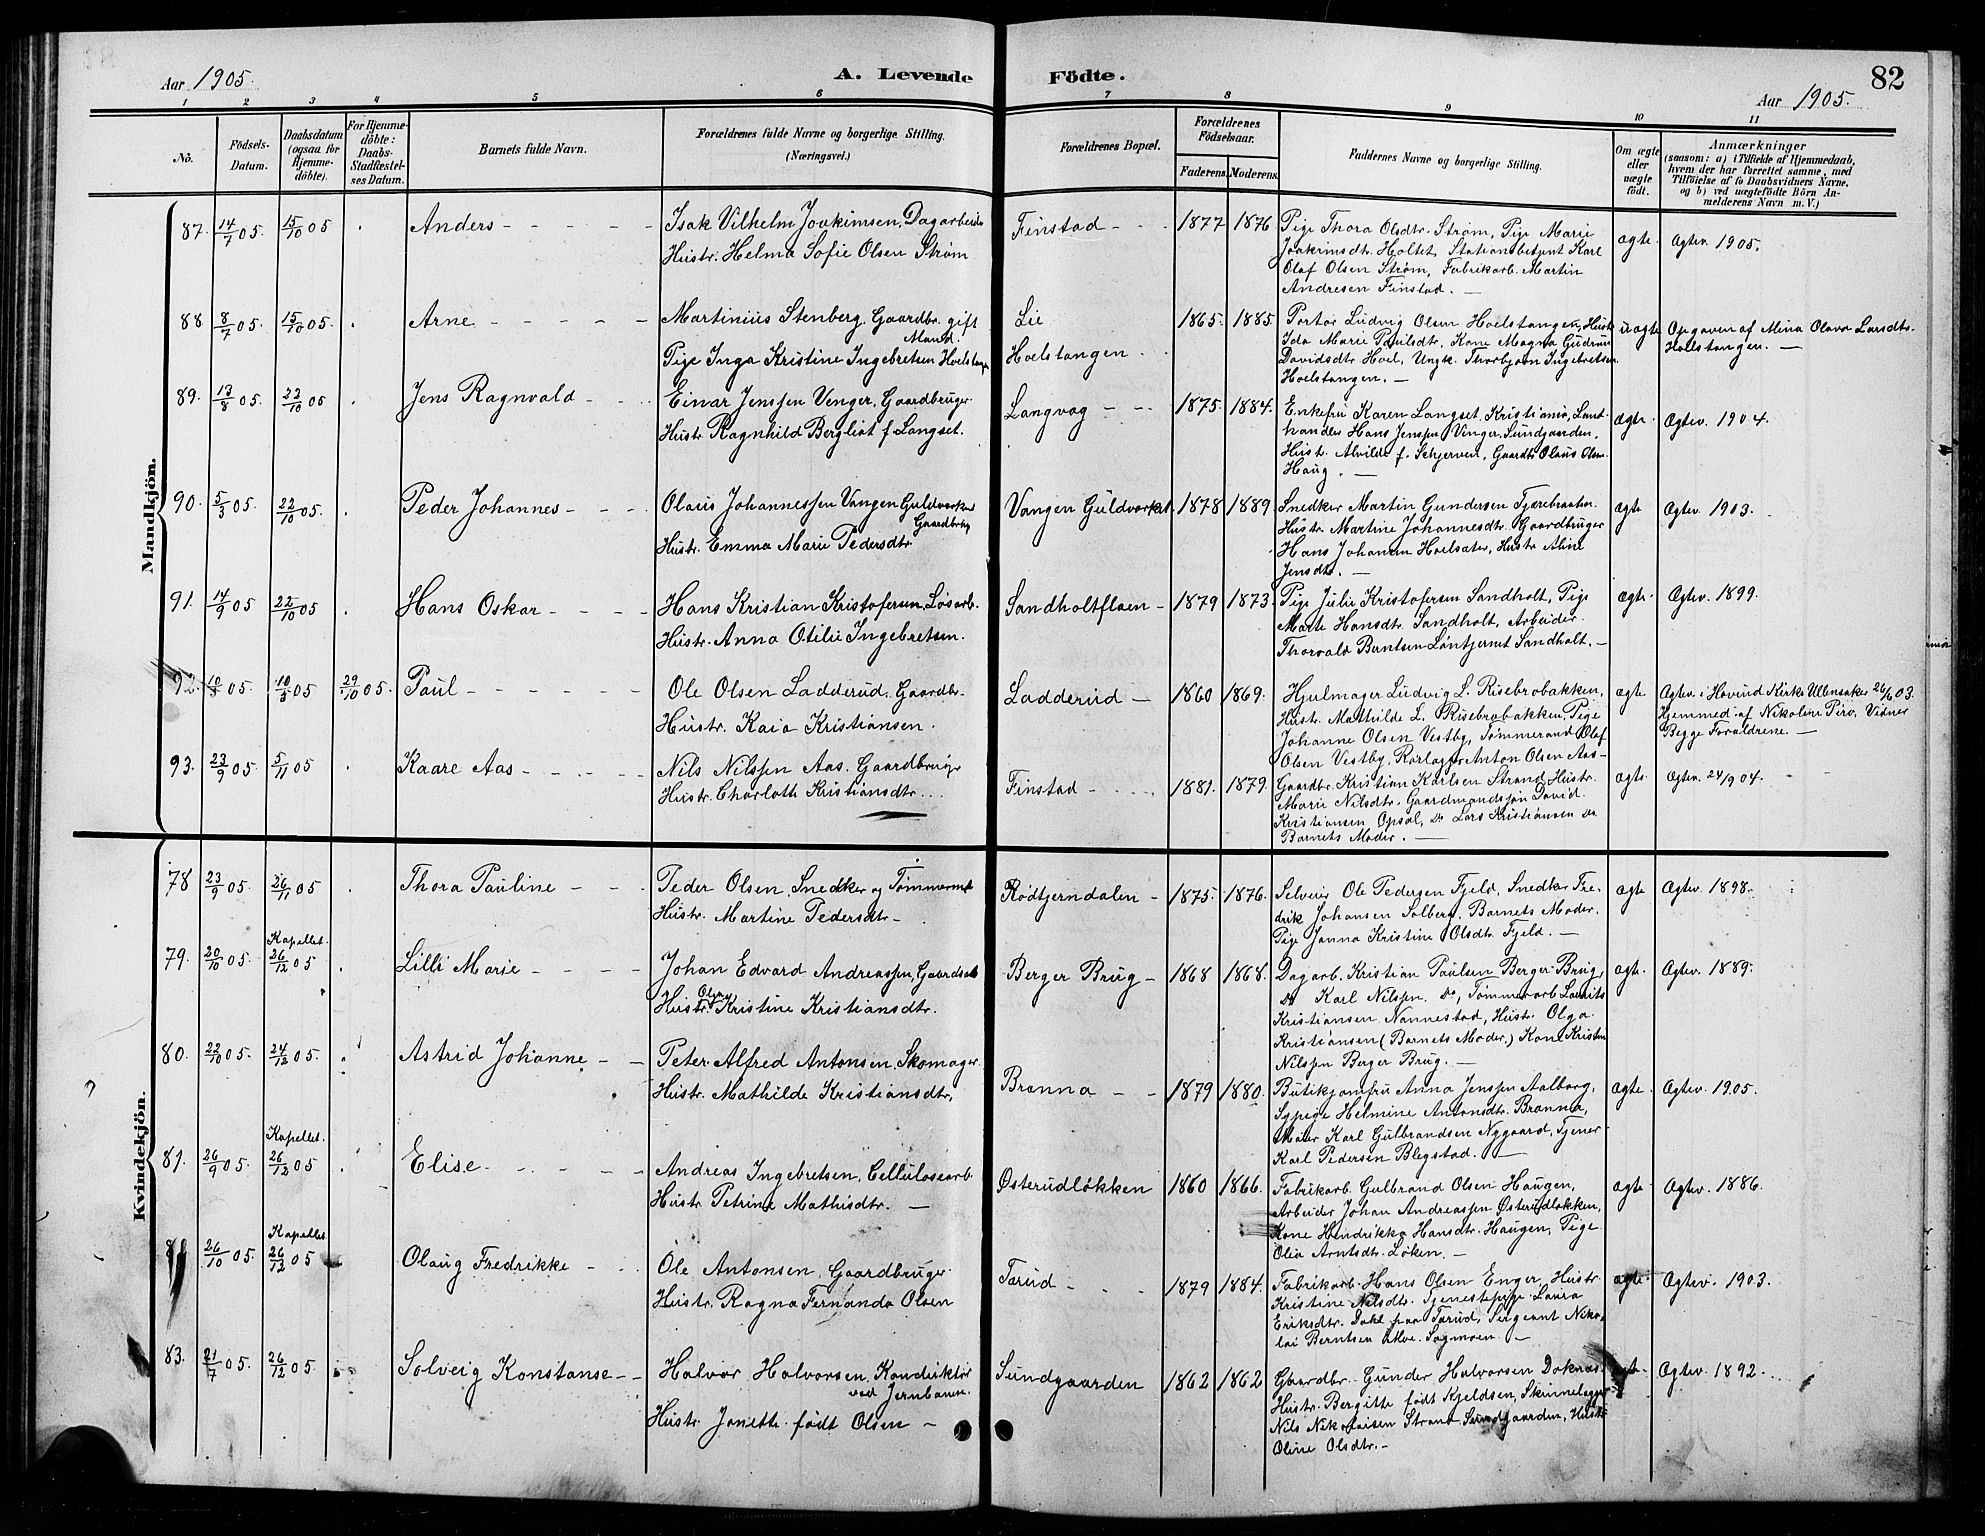 Aar 1905. A. Levende Födte. 82
Aar 1905.
1 2 3 4 5 6 7 8 9 10 11
No. Födsels-Datum. Daabsdatum (ogsaa for Hjemmedöbte). For Hjemmedöbte: Daabs-Stadfestelses Datum. Barnets fulde Navn. Forældrenes fulde Navne og borgerlige Stilling. (Næringsvei.) Forældrenes Bopæl. Forældrenes Födselsaar. Faderens. Moderens. Faddernes Navne og borgerlige Stilling. Om ægte eller uægte födt. Anmærkninger (saasom: a) i Tilfælde af Hjemmedaab, hvem der har forrettet samme, med Tilföielse af to Daabsvidners Navne, og b) ved uægtefödte Börn Anmelderens Navn m. V.)
Mandkjön.
87. 14/7 05. 15/10 05 Anders Isak Vilhelm Joakimsen, Dagarbeider Finstad 1877 1876 Pige Thora Olsdtr. Strøm, Pige Marie ægte. Ægtev. 1905.
Hustr. Helma Sofie Olsen Strøm Joakimsdtr. Holtet, Stationsbetjent Karl
Olaf Olsen Strøm, Fabrikarb. Martin
Andresen Finstad. —
88 8/7 05. 15/10 05. Arne Martinius Stenberg. Gaardbr. gift Mand. Lie 1865. 1885. Ludvig Olsen Hoelstangen, Hustr. uægte Opgaven af Mina Olava Larsdtr.
Pige Inga Kristine Ingebretsen Hoelstangen Hoelstangen Ida Marie Paulsdtr, Kone Magna Gudrun Hoelstangen. —
Davidsdtr Hoel, Ungk. Thorbjørn Ingebretsen
Hoelstangen. —
89. 13/8 05. 22/10 05 Jens Ragnvald Einar Jenssen Venger, Gaardbruger Langvag 1875. 1884. Enkefru Karen Langset, Kristiania, Land- ægte. Ægtev. 1904.
Hustr. Ragnhild Bergliot f. Langset. handler Hans Jenssen Vinger, Sundgaarden,
Hustr. Alvilde f. Schjerven, Gaardbr. Olaus Olsen
Haug. —
90. 5/3 05. 22/10 05. Peder Johannes Olaus Johannessen Vangen Guldverket Gaardbrug Vangen Guldverket 1878 1889 Snedker Martin Gundersen ægte Ægtev. 1903.
Hustr. Emma Marie Pedersdtr. Hustr. Martine Johannesdtr. Gaardbruger
Hans Johansen Hoelsater, Hustr. Aline
Jensdtr. —
91. 14/9 05 22/10 05 Hans Oskar Hans Kristian Kristofersen, Løsarb. Sandholtfloen 1879 1873 Pige Julie Kristofersen Sandholt, Pige ægte. Ægtev. 1899.
Hustr. Anna Otilie Ingebretsen. Marte Hansdtr. Sandholt, Arbeider
Thorvald Berntsen Løntjernet Sandholt. —
92. 05. 05 29/10 05. Paul Ole Olsen Ladderud, Gaardbr. Ladderud 1860 1869. Hjulmager Ludvig L. Risebrobakken, ægte Ægtev. i Hovind Kirke Ullensaker 26/6 03.
Hustr. Kaia Kristiansen. Hustr. Mathilde L. Risebrobakken, Pige Hjemmed. af Nikoline Piro, Vidner
Johanne Olsen Vestby, Tømmermand Olaf Begge Forældrene. —
Olsen Vestby, Rørlægger Anton Olsen Aas —
93. 23/9 05. 5/11 05 Kaare Aas Nils Nilssen Aas. Gaardbruger Finstad 1881. 1879. Gaardbr. Kristian Karlsen Strand, Hustr. ægte Ægtev. 24/9 04.
Hustr. Charlotte Kristiansdtr. Marie Nilsdtr. Gaardmandssøn David
Kristiansen Opsal, Do Lars Kristiansen Do
Barnets Moder. —
Kvindekjön.
78 23/9 05. 26/11 05 Thora Pauline Peder Olsen, Snedker og Tømmermd. Rødtjerndalen 1875. 1876. Selveier Ole Pedersen Fjeld, Snedker Fre- ægte Ægtev. 1898.
Hustr. Martine Pedersdtr. drik Johansen Solberg, Barnets Moder.
Pige Janna Kristine Olsdtr. Fjeld. —
79. 20/10 05. Kapellet. 26/12 05 Lilli Marie Johan Edvard Andreassen, Berger Brug 1868 1868. Dagarb. Kristian Paulsen Berger Brug, ægte. Ægtev. 1889.
Hustr. Olga Kristine Kristiansdtr. Do Karl Nilssen. Do, Tømmerarb. Lavrits
Kristiansen Nannestad, Hustr. Olga
Kristiansen (Barnets Moder.) Kone Kristine
Nilssen Berger Brug. —
80. 22/10 05. 24/12 05. Astrid Johanne Peter Alfred Antonsen, Skomager Branna 1879 1880. Butikjomfru Anna Jenssen Aalborg, ægte. Ægtev. 1905.
Hustr. Mathilde Kristiansdtr. Sypige Helmine Antonsdtr. Branna,
Maler Karl Gulbrandsen Nygaard, Tjener
Karl Pedersen Blegstad. —
81. 26/9 05. Kapellet. 26/12 05 Elise Andreas Ingebretsen, Cellulosearb. Østerudløkken 1860 1866. Fabrikarb. Gulbrand Olsen Haugen, ægte. Ægtev. 1886.
Hustr. Petrine Mathisdtr. — Arbeider Johan Andreassen Østerudløkken,
Kone Hendrikke Hansdtr. Haugen, Pige
Olea Arntsdtr. Løken. —
26/10 05. Kapellet 26/12 05 Olaug Fredrikke Ole Antonsen, Gaardbruger Tarud 1879 1884. Fabrikarb. Hans Olsen Enger, Hustr. ægte. Ægtev. 1903.
Hustr. Ragna Fernanda Olsen Kristine Nilsdtr. Tjenestepige Laura
Eriksdtr. Dahl paa Tarud, Sergeant Niko-
lai Berntsen Sagmoen. —
83. 21/7 05. 26/12 05 Solveig Konstanse Halvor Halvorsen, Konduktør ved Jernbanen. Sundgaarden 1862 1862 Gaardbr. Gunder Halvorsen Doknæs. Ægtev. 1892.
Hustr. Jonette født Olsen — Hustr. Bergitte født Kjeldsen, Skinnelægger
Nils Nikolaisen Strand Sundgaarden, Hustr.
Oline Olsdtr. —